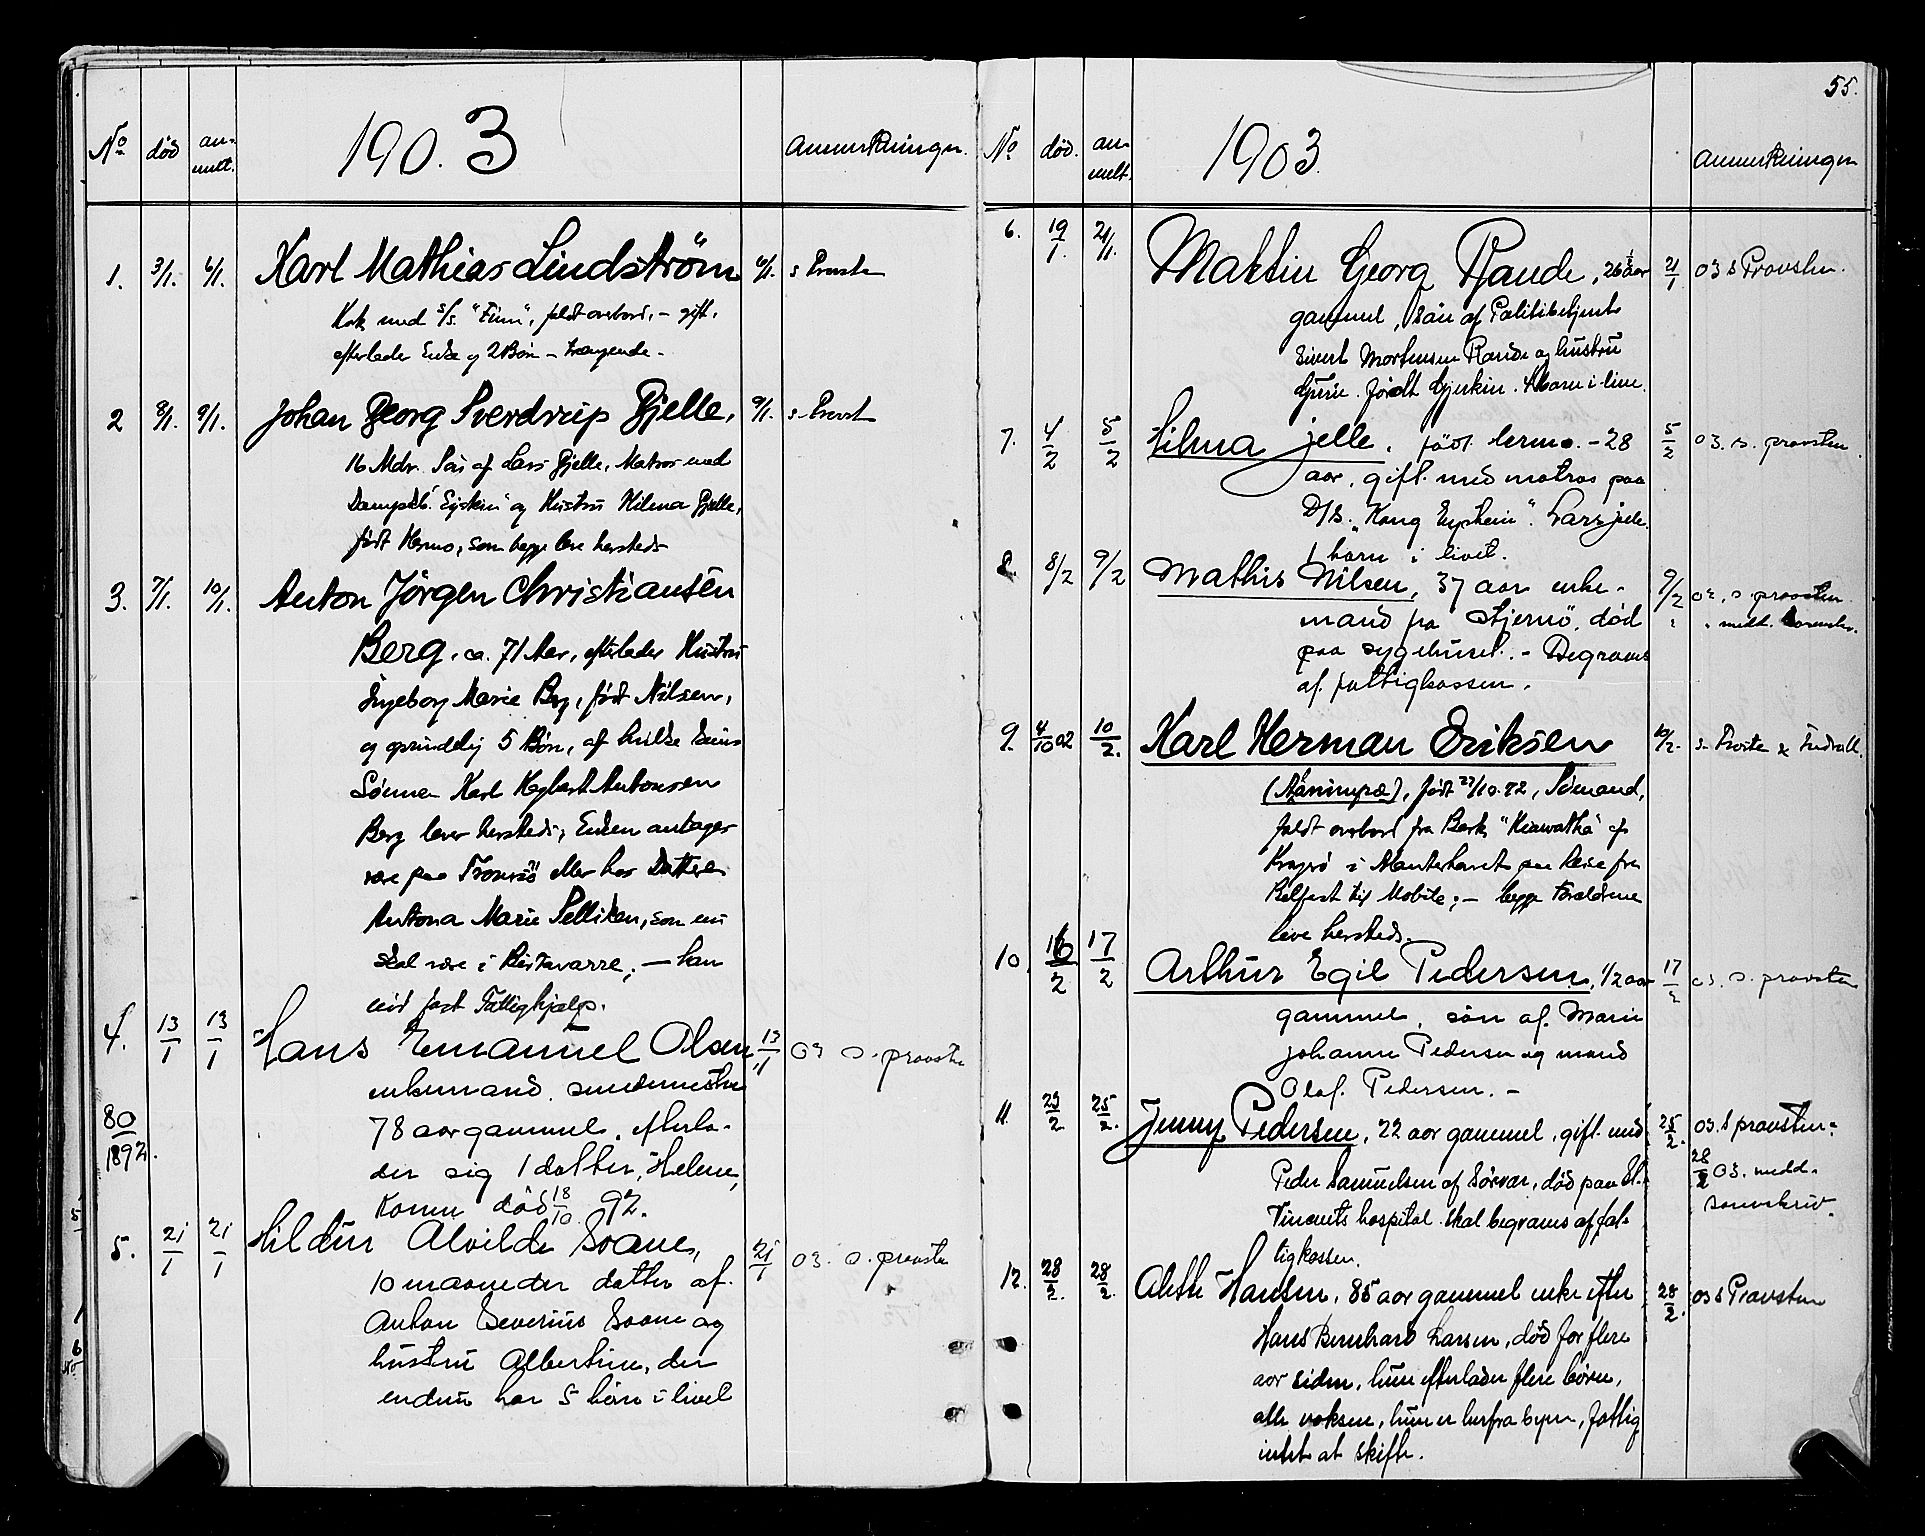 No død anmelt. 1903 Anmerkninger.
1. 3/1. 6/1. Karl Mathias Lindström 6/1. s Provsten
Kok med S/S. "Finn", faldt overbord, - gift,
efterlader Enke og 2 Börn - trængende.
2 8/1. 9/1. Johan Georg Sverdrup Gjelle, 9/1. s. Provst
16 Mdr. Søn af Lars Gjelle, Matros med
Dampsk. og Hustru Hilma Gjelle,
født Hermo, som begge leve hersteds
3. 7/1. 10/1. Anton Jörgen Christiansen
Berg, ca. 71 Aar, efterlader Hustru
Ingeborg Marie Berg, født Nilsen,
og 5 Börn, af hvilke
Sønnen Karl Antonsen
Berg lever hersteds; Enken antages
være paa Tromsö eller hos Datteren
Antona Marie, som nu
skal være i Birtavarre; — han
nød fast Fattighjælp.
4. 13/1 13/1 Hans Emanuel Olsen, 13/1 03 s. provsten
enkemand, smedmester
80/1892. 78 aar gammel, efterla-
der sig 1 datter, Helene,
Konen død 18/10 92.
5. 21/1 21/1 Hildur Alvilde Soane, 21/1 03. s. provsten
10 maaneder datter af
Anton Severius Soane og
hustru Albertine, der
endnu har 5 börn i livet
55.
No død. anmelt. 1903. Anmerkninger
6. 19/1. 21/1. Martin Georg Rande, 26½ aar 21/1 03 s Provsten.
gammel, sön af Politibetjent
Sivert Mortensen Rande og hustru
Gurie født Gjerkin. 4 barn i live.
7. 4/2 5/2 Hilma jelle. født Hermo. - 28 5/2 03. s. provsten.
aar, gift med matros paa
D/S. "Kong Eystein". Lars jelle.
1 barn i livet.
8. 8/2 9/2 Mathis Nilsen, 37 aar enke- 9/2 03. s. provsten
mand fra Stjernö, død " " medd. sorenskr.
paa sygehuset. - Begraves
af fattigkassen.
9. 4/10 02 10/2. Karl Herman Eriksen 10/2. s. Provsten &
født 27/10.72, Sømand,
faldt overbord fra Bark "Hiawatha" af
Kragerö i Atlanterhavet paa Reise fra
Belfast til Mobile; — begge Forældrene
leve hersteds.
10. 16/2 17/2 Arthur Egil Pedersen, 1/2 aar 17/2 03. s. provsten
gammel, søn af Marie
Johanne Pedersen og mand
Olaf Pedersen. -
11. 23/2 25/2. Jenny Pedersen, 22 aar gammel, gift med 25/2. 03. s provsten-
Peder Samuelsen af Sørvær, død paa St. 28/2 03. medd.
Vincents hospital. Skal begraves af fat- sorenskriv.
tigkassen.
12. 28/2. 28/2. Alette Hansen, 85 aar gammel enke efter 28/2. 03 s Provsten
Hans Bernhard Larsen, død for flere
aar siden, hun efterlader flere börn,
alle voksne, hun er herfra byen, fattig,
intet at skifte.